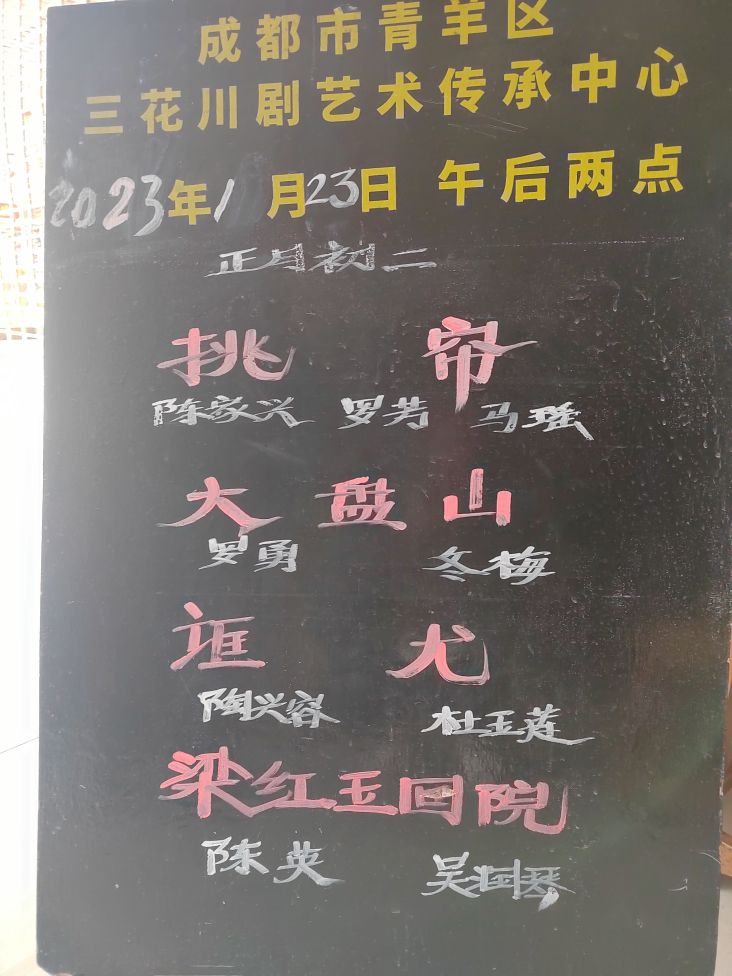 成都市青羊区
三花川剧艺术传承中心
2023年1月23日 午后两点
正月初二
挑 帘
陈家兴 罗芳 马瑶
大盘山
罗勇 冬梅
诓 尤
陶兴容 杜玉莲
梁红玉回院
陈英 吴国琴